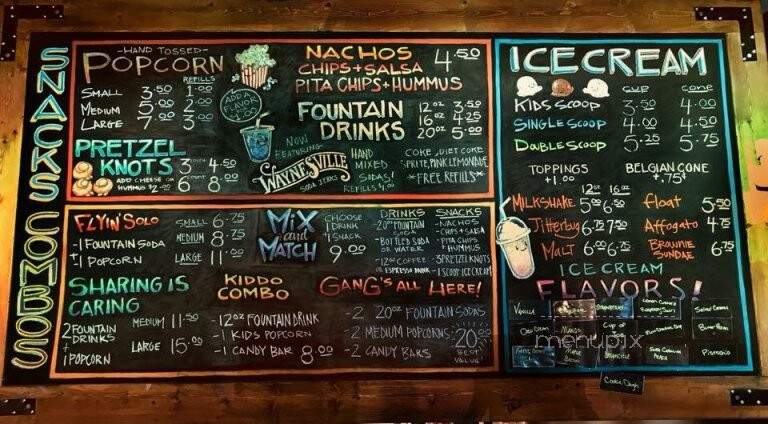 SNACKS
COMBOS
-HAND TOSSED-
POPCORN
REFILLS
SMALL 3.50 1.00
MEDIUM 5.00 2.00
LARGE 7.00 3.00
ADD A FLAVOR
PRETZEL
KNOTS
3 COUNT 4.50
ADD CHEESE OR
HUMMUS $2.00
6 COUNT 8.00
NACHOS
CHIPS+SALSA 4.50
PITA CHIPS+HUMMUS
FOUNTAIN
DRINKS
12oz 3.50
16oz 4.25
20oz 5.00
NOW
FEATURING
WAYNESVILLE
SODA JERKS
HAND
MIXED
SODAS!
REFILLS
COKE, DIET COKE
SPRITE, PINK LEMONADE
*FREE REFILLS*
FLYIN' SOLO
-1 FOUNTAIN SODA
-1 POPCORN
SMALL 6.75
MEDIUM 8.75
LARGE 11.00
MIX
and
MATCH
CHOOSE
1 DRINK
1 SNACK
9.00
DRINKS
-20oz FOUNTAIN
SODA
-BOTTLED SODA
OR WATER
-12oz COFFEE
OR ESPRESSO DRINK
SNACKS
-NACHOS
-CHIPS+SALSA
-PITA CHIPS
+HUMMUS
-3 PRETZEL KNOTS
-1 SCOOP ICE CREAM
SHARING IS
CARING
2 FOUNTAIN
DRINKS
1 POPCORN
MEDIUM 11.50
LARGE 15.00
KIDDO
COMBO
-12oz FOUNTAIN DRINK
-1 KIDS POPCORN
-1 CANDY BAR 8.00
GANG'S ALL HERE!
-2 20oz FOUNTAIN SODAS
-2 MEDIUM POPCORNS
-2 CANDY BARS
20.00
BEST
VALUE
ICE CREAM
CUP CONE
KIDS SCOOP 3.50 4.00
SINGLE SCOOP 4.00 4.50
DOUBLE SCOOP 5.25 5.75
TOPPINGS
+1.00
BELGIAN CONE
+.75¢
12oz 16oz
MILKSHAKE 5.00 6.50
Jitterbug 6.75 7.50
MALT 6.00 6.75
float 5.50
Affogato 4.75
BROWNIE
SUNDAE 6.75
ICE CREAM
FLAVORS!
Vanilla
Salted Caramel
Mango
Cup of
Butter Pecan
Pistachio
Cookie Dough
menupix